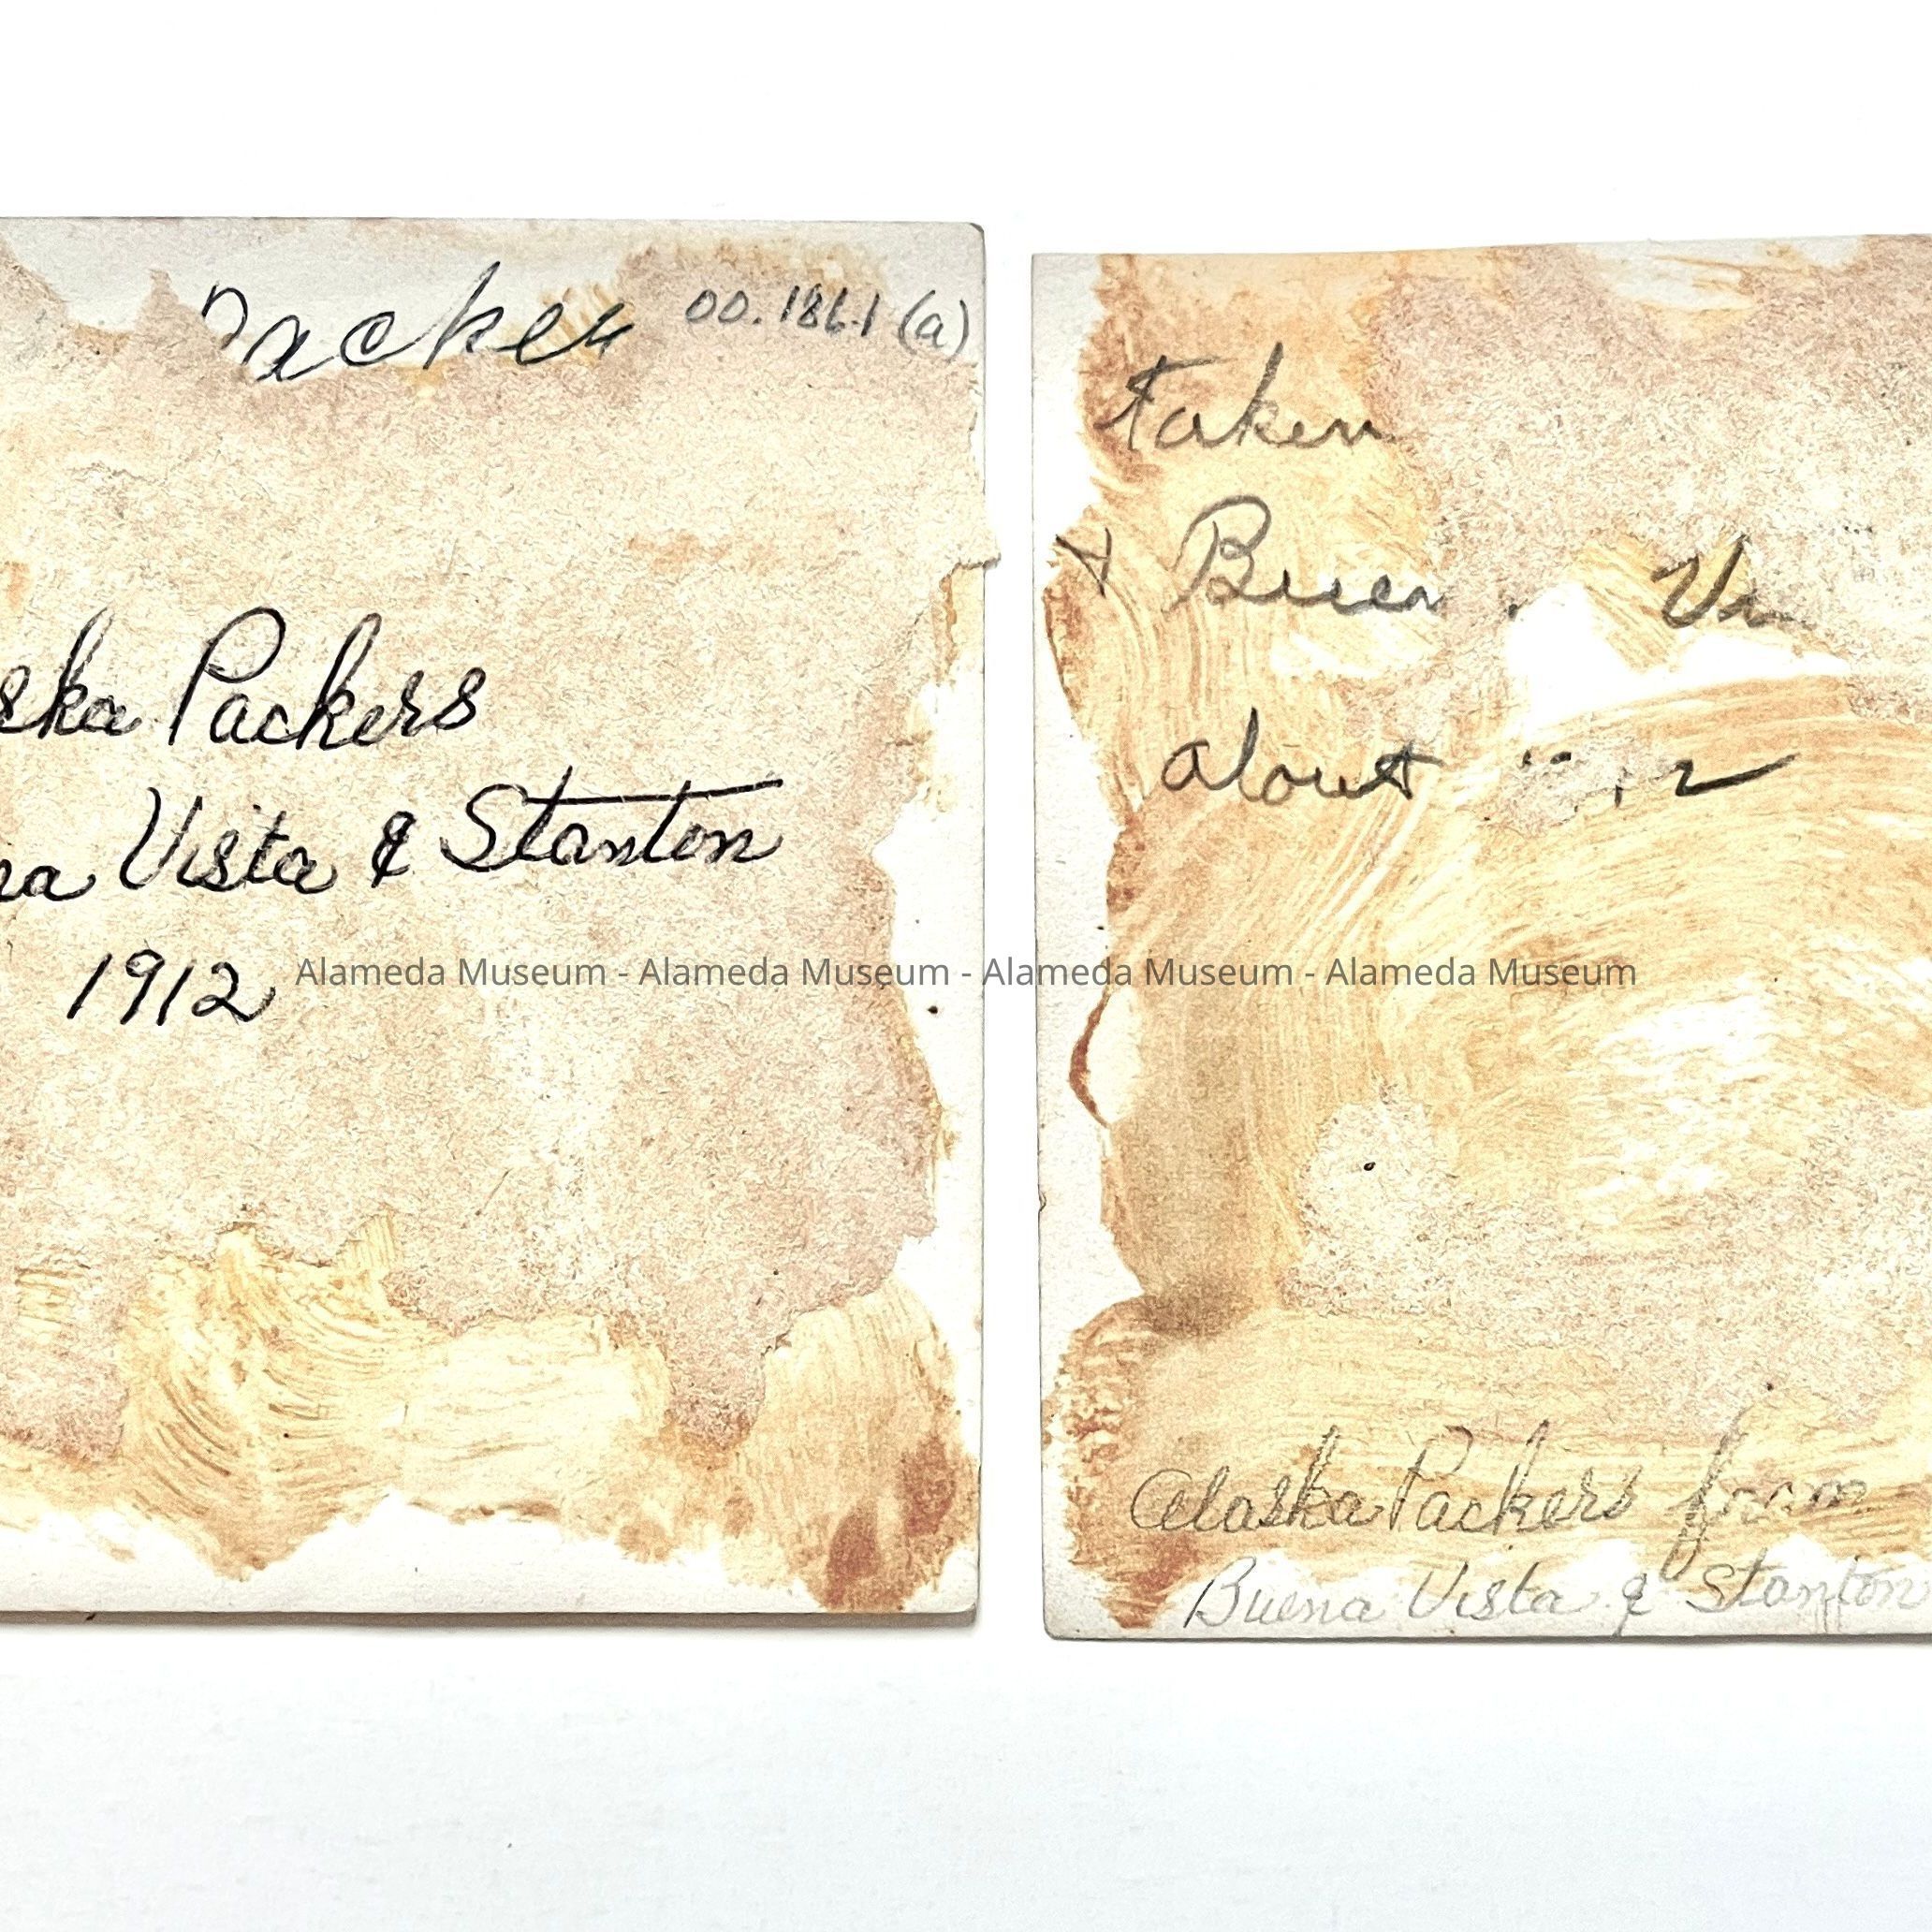 Packer 00.186.1 (a)
ska Packers
na Vista & Stanton
1912
Alameda Museum - Alameda Museum - Alameda Museum - Alameda Museum
taken
Buen Vi
about
Alaska Packers from
Buena Vista & Stanton